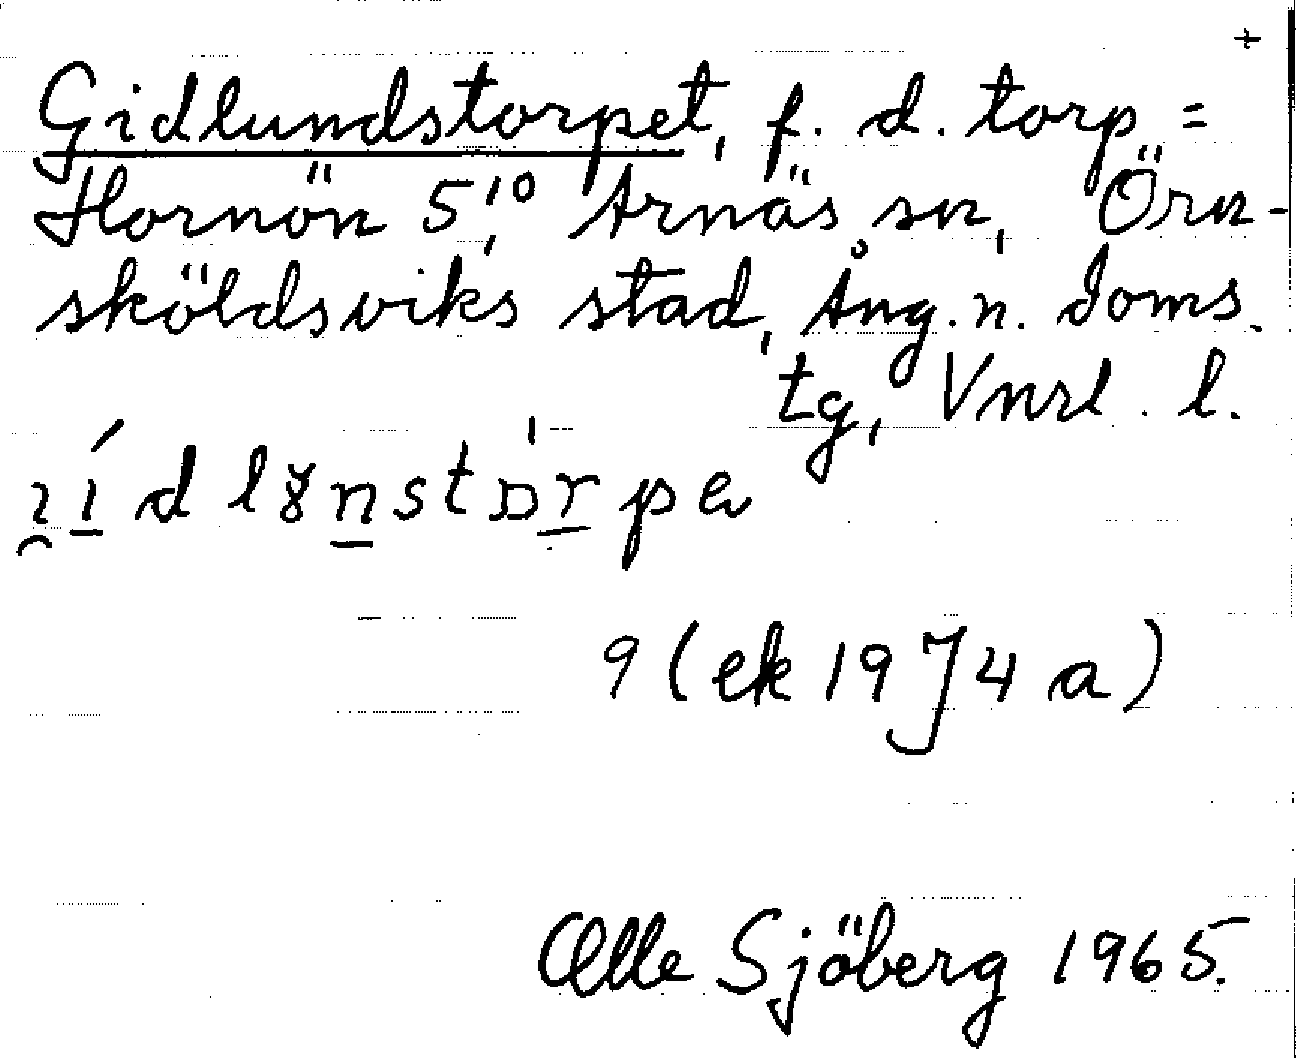 +
Gidlundstorpet, f. d. torp =
Hornön 5:10 Arnäs sn, Örn-
sköldsviks stad, Ång. n. doms.
tg, Vnrl. l.
9 (ek 19J4 a)
Olle Sjöberg 1965.